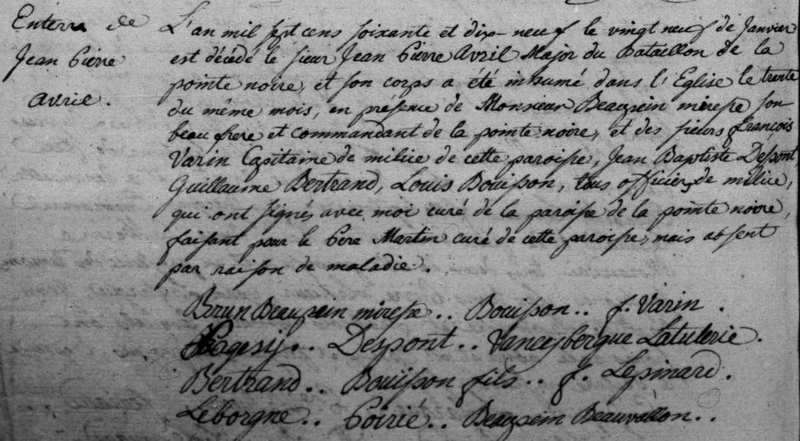 Enterre de
Jean Pierre
avril.
L'an mil sept cens soixante et dix-neuf le vingt neuf de Janvier
est décédé le sieur Jean Pierre Avril Major du Bataillon de la
pointe noire, et son corps a été inhumé dans l'Eglise le trente
du même mois, en presence de Monsieur Beaupein mirepe son
beau frere et commandant de la pointe noire, et des sieurs françois
Varin Capitaine de milice de cette paroisse, Jean Baptiste Despont
Guillaume Bertrand, Louis Bouisson, tous officier de milice,
qui ont signés avec moi curé de la paroisse de la pointe noire,
faisant pour le Pere Martin curé de cette paroisse, mais absent
par raison de maladie.
Brun Beaupein mirepe.. Bouisson.. f. Varin.
Despont.. Vanceybergue Latulerie.
Bertrand.. Bouisson fils.. f. Lepinard.
Leborgne.. Poirié.. Beaupein Beauvallon..